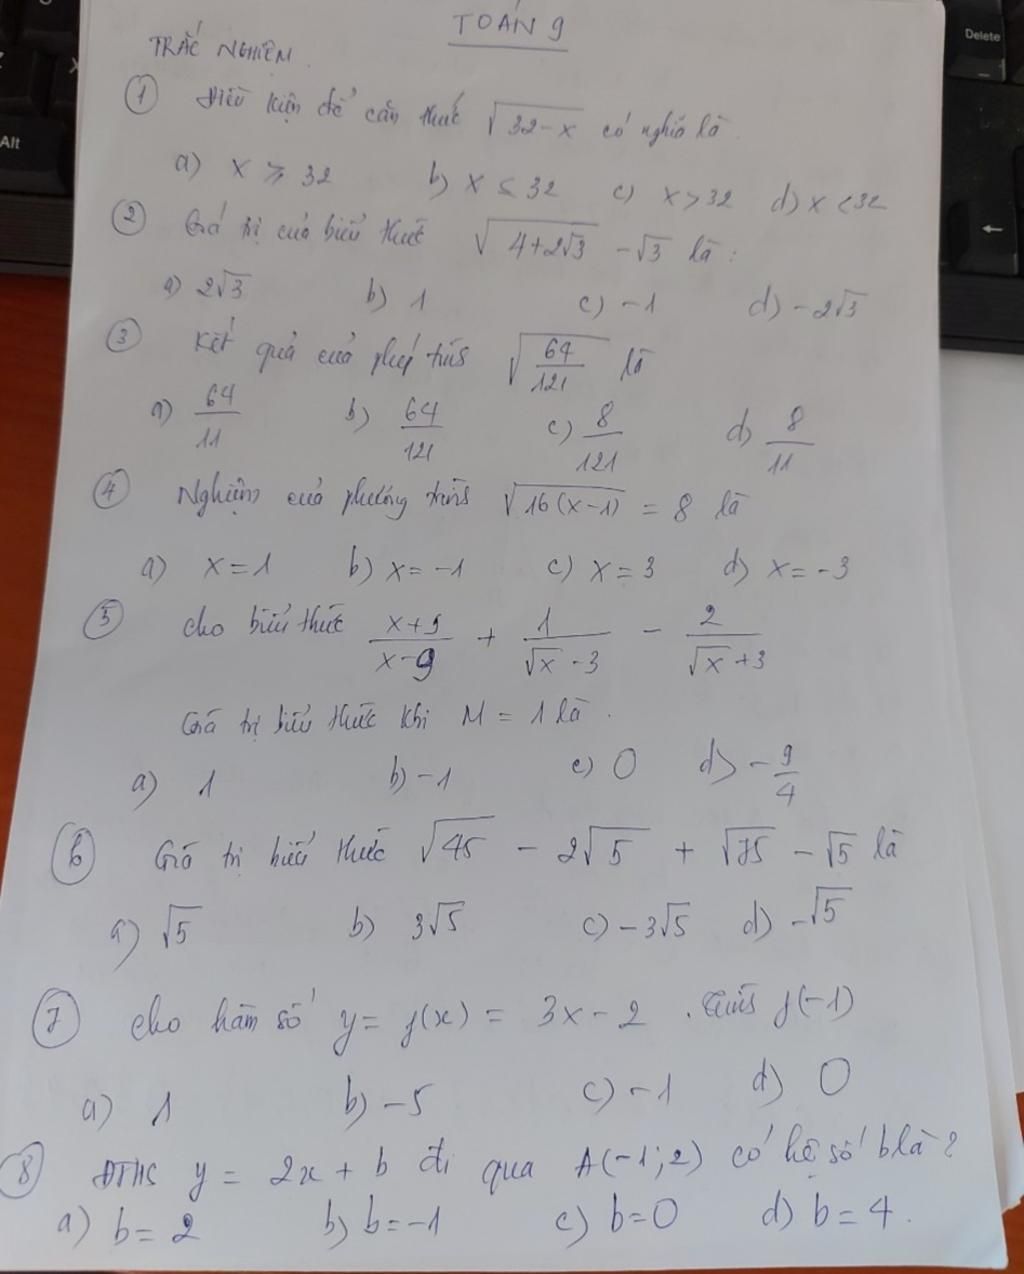 TOÁN 9
TRẮC NGHIỆM
① Điều kiện để căn thức √(32-x) có nghĩa là.
a) x ⩾ 32 b) x ≤ 32 c) x > 32 d) x < 32
② Giá trị của biểu thức √(4+2√3) - √3 là :
a) 2√3 b) 1 c) -1 d) -2√3
③ Kết quả của phép tính √(64/121) là
a) 64/11 b) 64/121 c) 8/121 d) 8/11
④ Nghiệm của phương trình √(16(x-1)) = 8 là
a) x = 1 b) x = -1 c) x = 3 d) x = -3
⑤ cho biểu thức (x+9)/(x-9) + 1/(√x-3) - 2/(√x+3)
Giá trị biểu thức khi M = 1 là.
a) 1 b) -1 c) 0 d) -9/4
⑥ Giá trị biểu thức √45 - 2√5 + √75 - √5 là
a) √5 b) 3√5 c) -3√5 d) -√5
⑦ cho hàm số y = f(x) = 3x - 2. Tính f(-1)
a) 1 b) -5 c) -1 d) 0
⑧ ĐTHS y = 2x + b đi qua A(-1;2) có hệ số b là?
a) b = 2 b) b = -1 c) b = 0 d) b = 4.
Delete
Alt